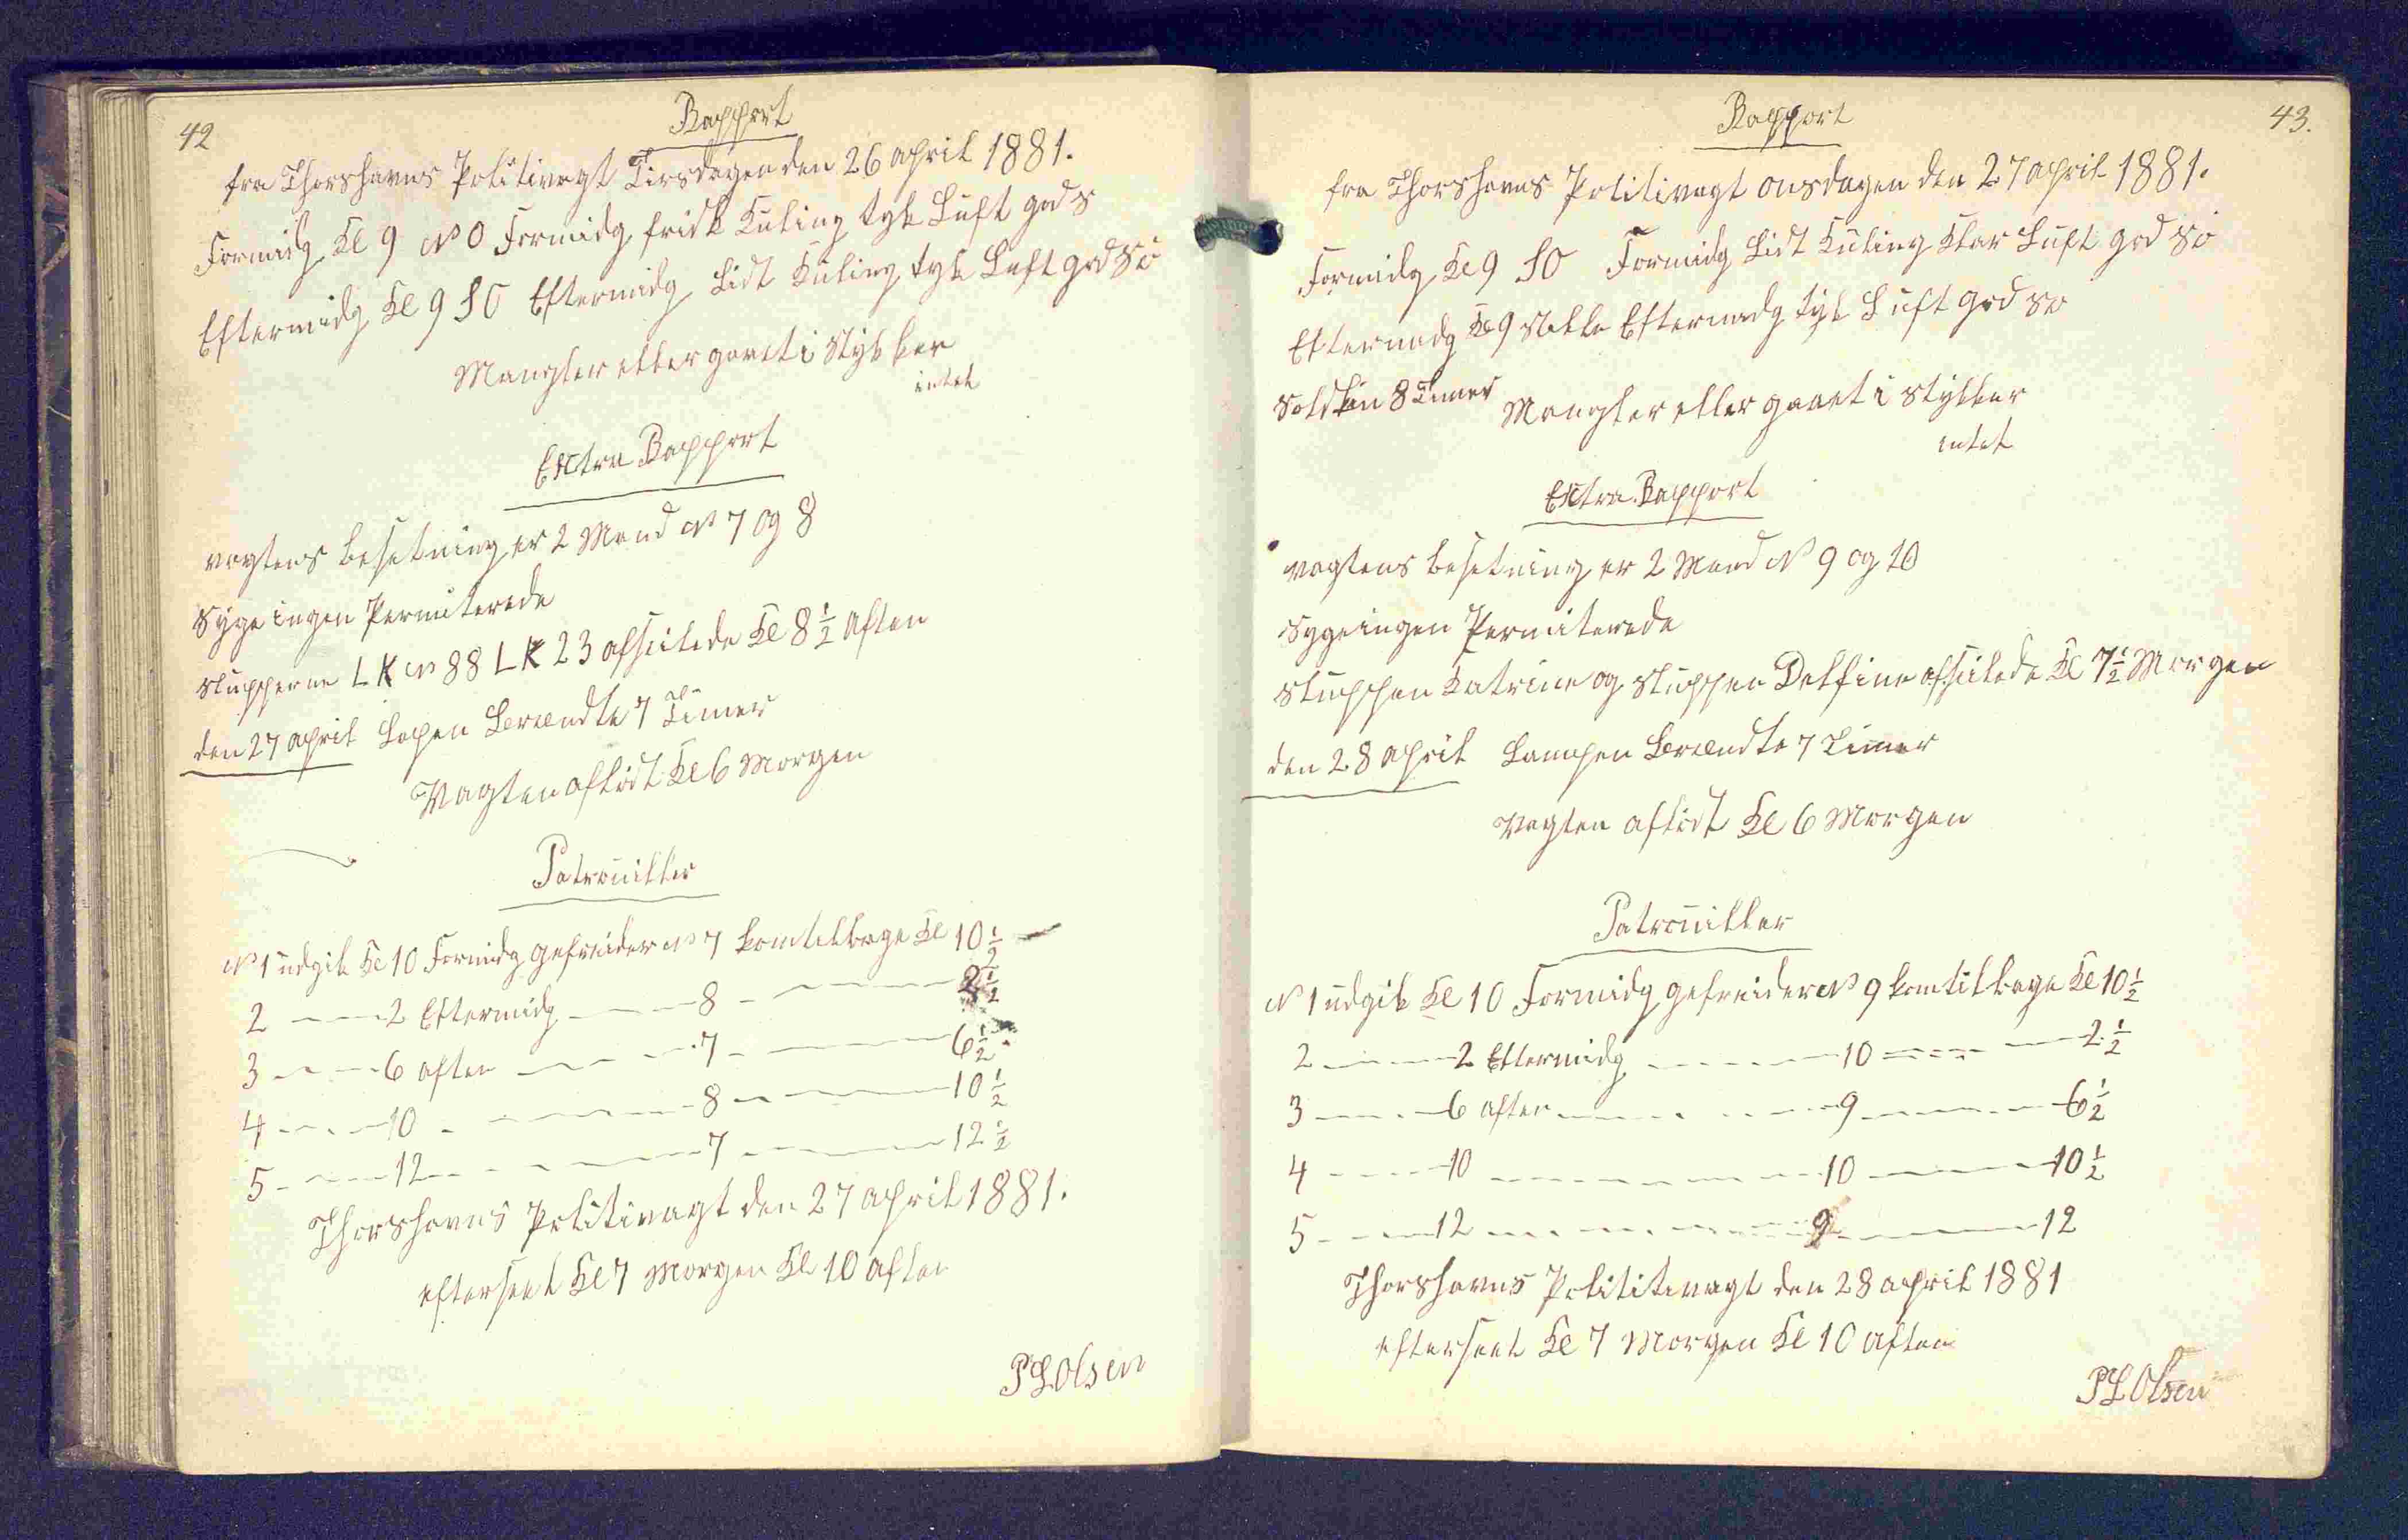 42
Rapport
fra Thorshavns Politivagt Tirsdagen den 26 april 1881.
Formidg Kl 9 N O Formidg frisk Kuling tyk Luft god S
Eftermidg Kl 9 S O Eftermidg Lidt Kuling tyk Luft god Sö
Mangler eller gaaet i Stykker
intet
Extra Rapport
vagtens besetning er 2 Mand No 7 og 8
Syge ingen Permiterede
slupperne LK No 88 LK 23 afseilede Kl 8 1/2 Aften
den 27 april Lapen Brændte 7 Timer
Vagten aflöst Kl 6 Morgen
Patrouiller
No 1 udgik Kl 10 Formidg gefreider No 7 kom tilbage Kl 10 1/2
2 — — 2 Eftermidg — — 8 — — 2 1/2
3 — — 6 aften — — 7 — — 6 1/2
4 — — 10 — — 8 — — 10 1/2
5 — — 12 — — 7 — — 12 1/2
Thorshavns Politivagt den 27 april 1881.
efterseet Kl 7 Morgen Kl 10 aften
P L Olsen
43.
Rapport
fra Thorshavns Politivagt onsdagen den 27 april 1881.
Formidg Kl 9 S O Formidg Lidt Kuling Klar Luft god Sö
Eftermidg Kl 9 Stille Eftermidg tyk Luft god Sö
Solskin 8 Timer
Mangler eller gaaet i stykker
intet
Extra Rapport
vagtens besetning er 2 Mand No 9 og 10
syge ingen Permiterede
sluppen Katrine og sluppen Delfine afseilede Kl 7 1/2 Morgen
den 28 april Lampen Brændte 7 Timer
Vagten aflöst Kl 6 Morgen
Patrouiller
No 1 udgik Kl 10 Formidg gefreider No 9 kom tilbage Kl 10 1/2
2 — — 2 Eftermidg — — 10 — — 2 1/2
3 — — 6 aften — — 9 — — 6 1/2
4 — — 10 — — 10 — — 10 1/2
5 — — 12 — — 9 — — 12
Thorshavns Polititivagt den 28 april 1881
efterseet Kl 7 Morgen Kl 10 aften
P L Olsen